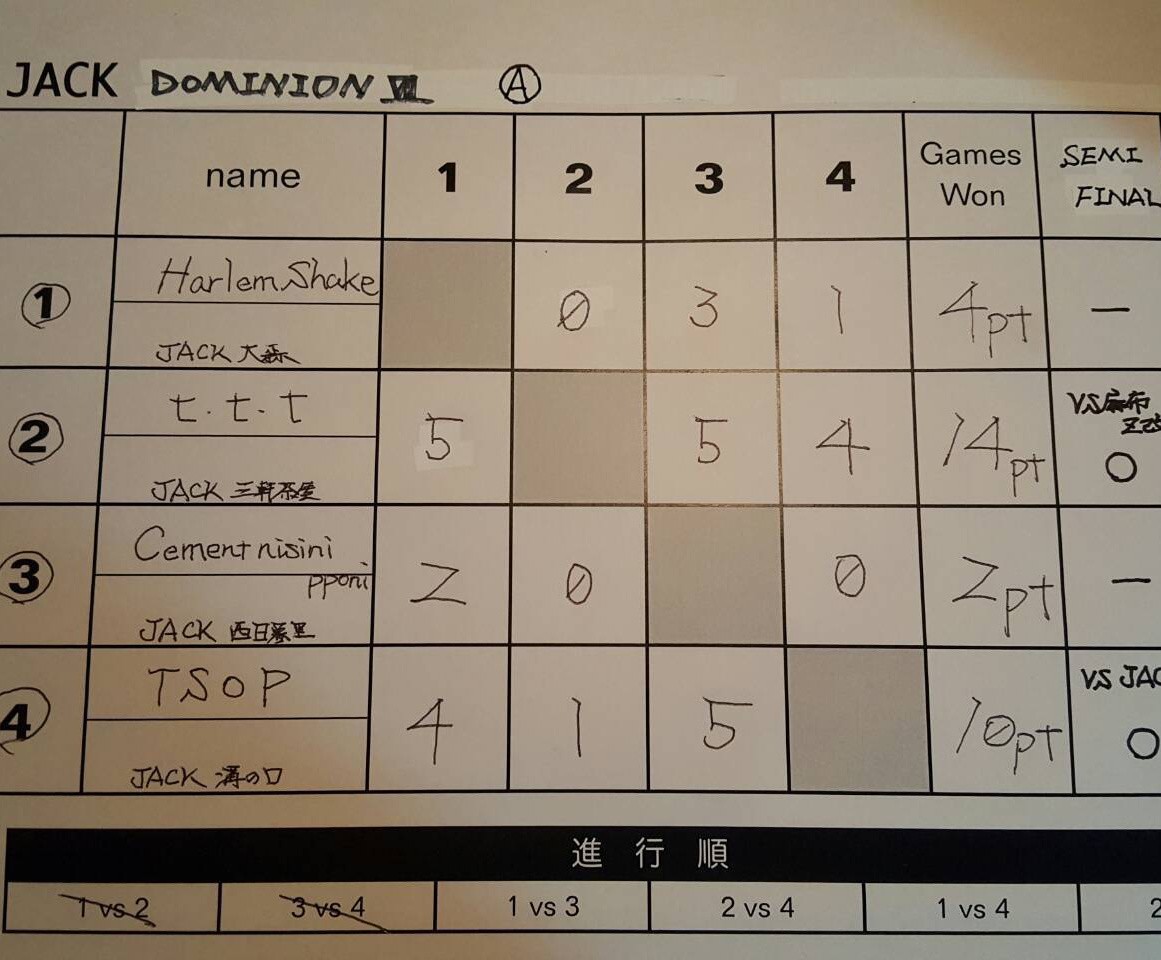 JACK DOMINION Ⅶ Ⓐ
name 1 2 3 4 Games Won SEMI FINAL
① HarlemShake 0 3 1 4pt —
JACK 大森
② t.t.t 5 5 4 14pt VS麻布
JACK 三軒茶屋 ○
③ Cement nisini 2 0 0 2pt —
pponi
JACK 西日暮里
④ TSOP 4 1 5 10pt VS JAC
JACK 溝の口 ○
進行順
1 vs 2 3 vs 4 1 vs 3 2 vs 4 1 vs 4 2